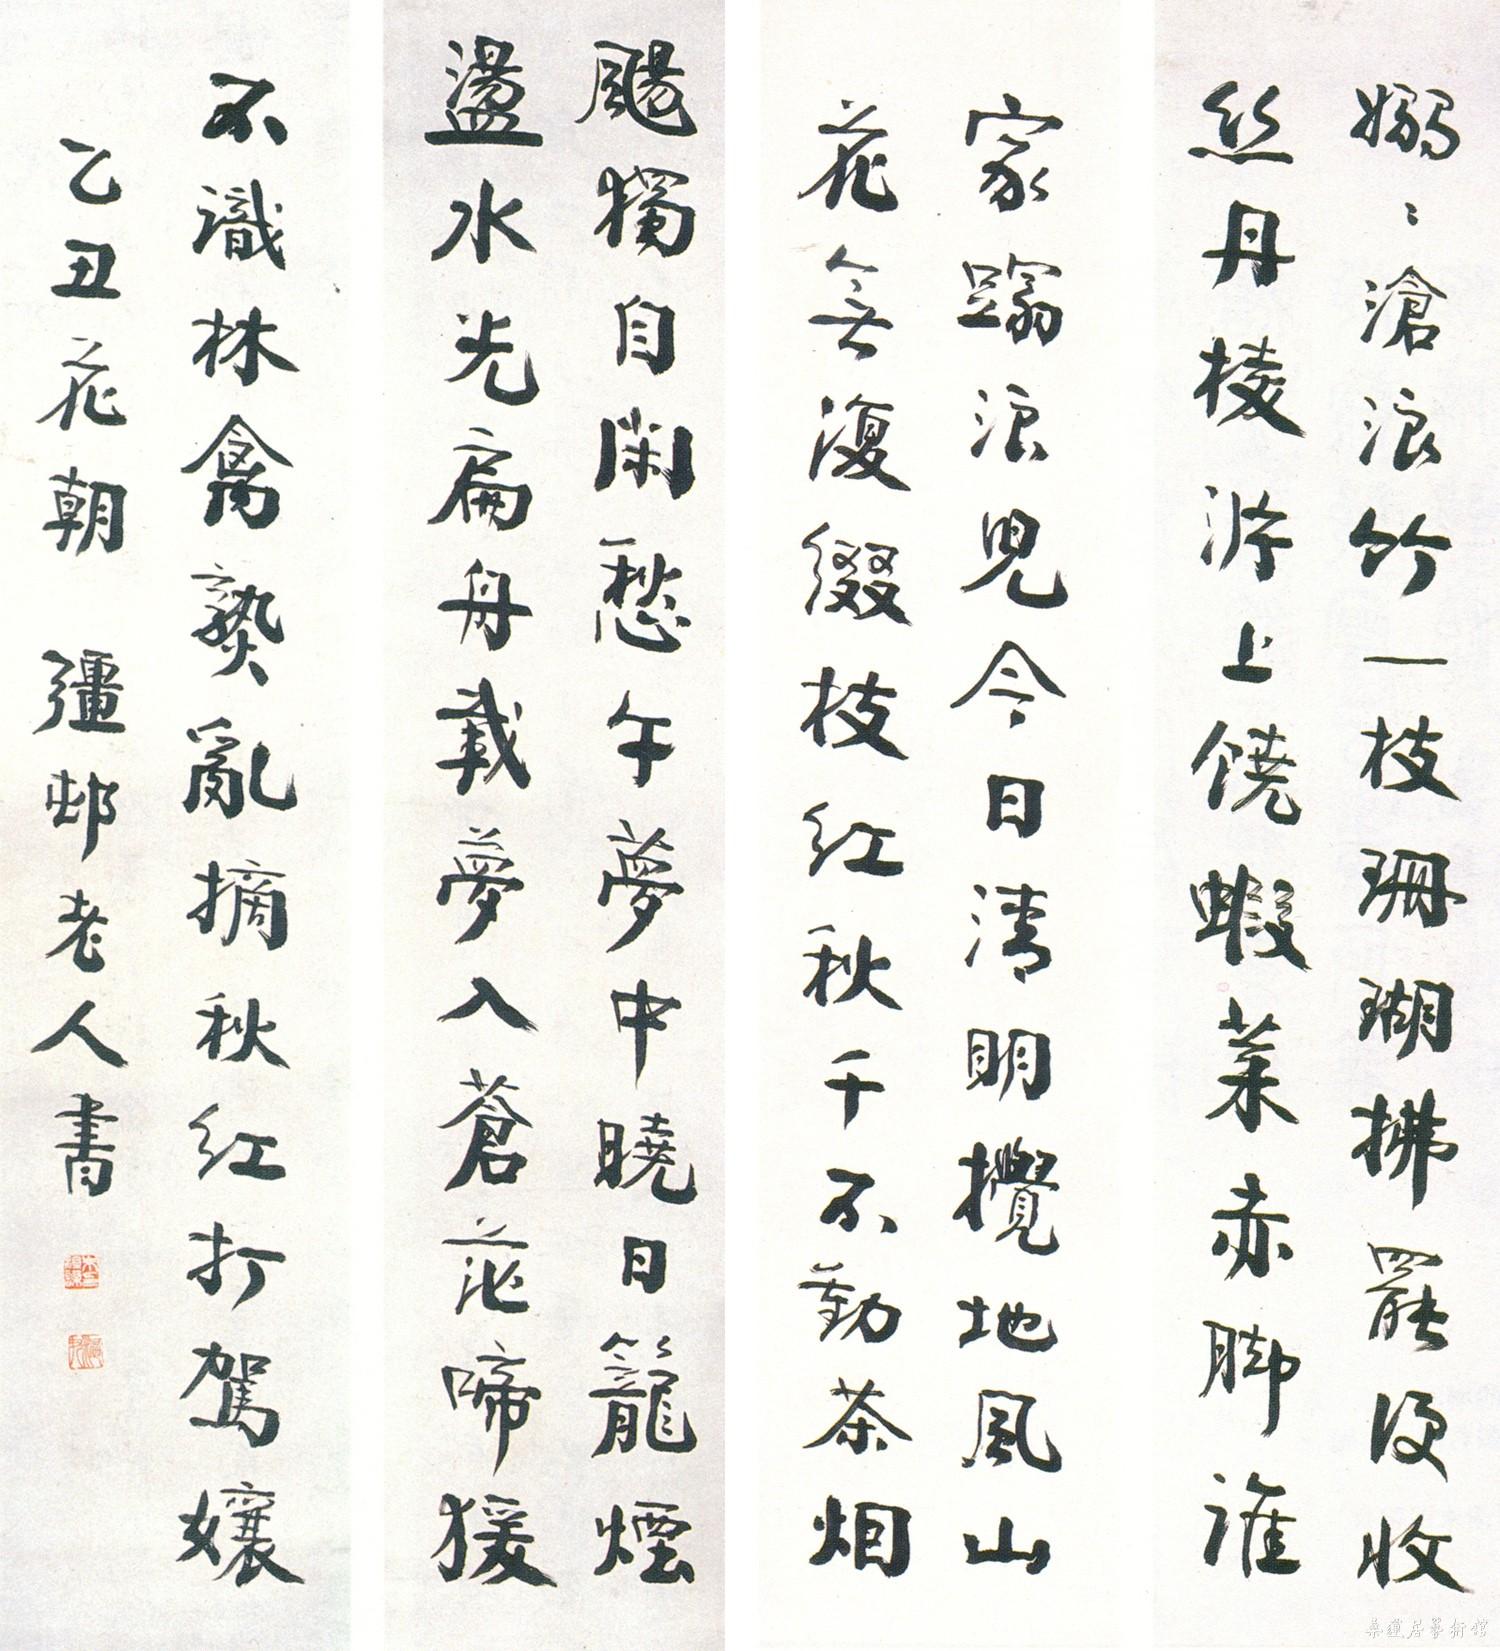 嫋〻滄浪竹一枝珊瑚拂罷便收
絲丹棱洴上饒蝦菜赤脚誰
家蹋浪兒今日清明攪地風山
花無復綴枝紅秋千不動茶烟
颺獨自閑愁午夢中曉日籠煙
盪水光扁舟載夢入蒼茫啼猨
不識林禽熟亂摘秋紅打鴛孃
乙丑花朝 彊邨老人書